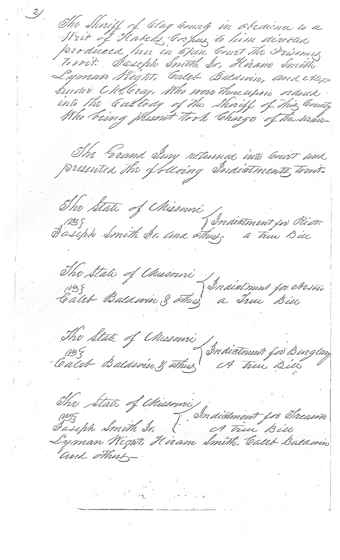 2)
The Sheriff of Clay County in obedience to a
Writ of Habeas Corpus to him directed
produced here in Open Court the Prisoners
towit Joseph Smith Jr. Hiram Smith
Lyman Wight, Caleb Baldwin, and Alex-
ander McCray. Who were thereupon ordered
into the Custody of the Sheriff of this County
Who being present took Charge of the same—
The Grand Jury returned into Court and
presented the following Indictments, towit
The State of Missouri
vs } Indictment for Riot
Joseph Smith Jr. and others, a true Bill
The State of Missouri
vs } Indictment for Arson
Caleb Baldwin & others a True Bill
The State of Missouri
vs } Indictment for Burglary
Caleb Baldwin & others A true Bill
The State of Missouri
vs } Indictment for Treason
Joseph Smith Jr. A true Bill
Lyman Wight, Hiram Smith, Caleb Baldwin
and others—